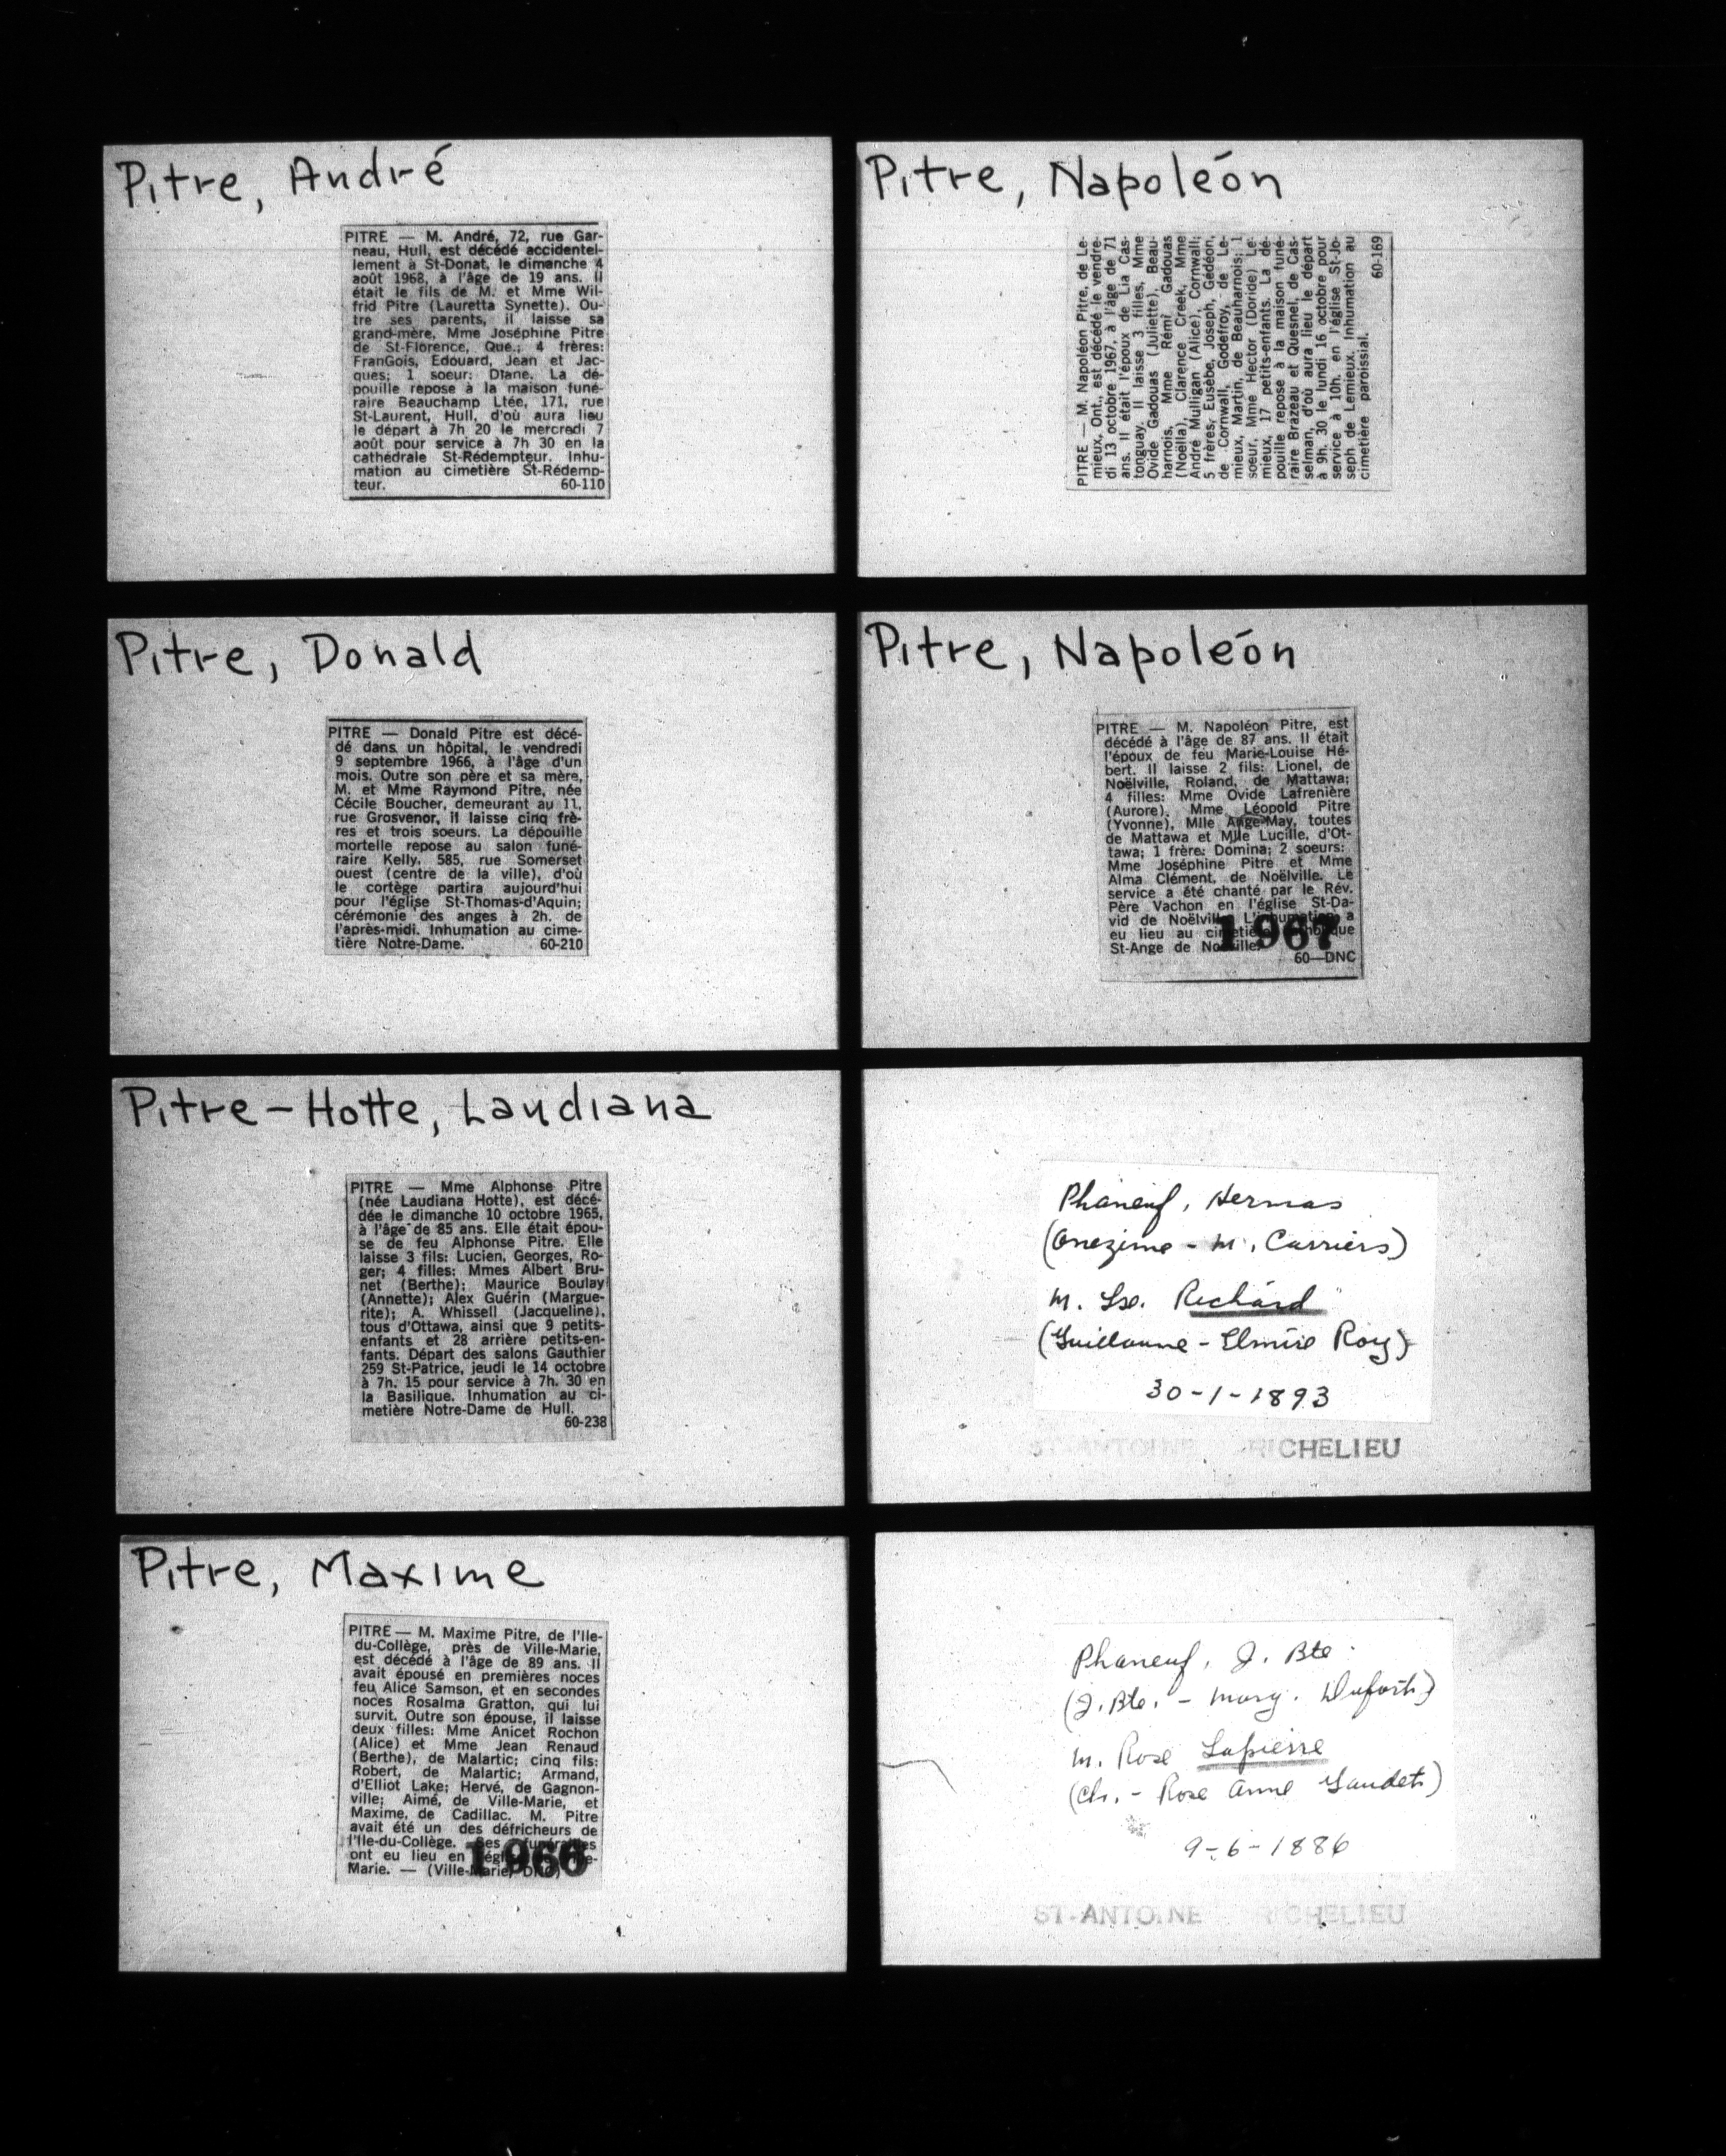 Pitre, André
PITRE — M. André, 72, rue Gar-
neau, Hull, est décédé accidentel-
lement à St-Donat, le dimanche 4
août 1968, à l'âge de 19 ans. Il
était le fils de M. et Mme Wil-
frid Pitre (Lauretta Synette). Ou-
tre ses parents, il laisse sa
grand-mère, Mme Joséphine Pitre
de St-Florence, Qué.; 4 frères:
FranGois, Edouard, Jean et Jac-
ques; 1 soeur: Diane. La dé-
pouille repose à la maison funé-
raire Beauchamp Ltée, 171, rue
St-Laurent, Hull, d'où aura lieu
le départ à 7h 20 le mercredi 7
août pour service à 7h 30 en la
cathédrale St-Rédempteur. Inhu-
mation au cimetière St-Rédemp-
teur. 60-110
Pitre, Napoléon
PITRE — M. Napoléon Pitre, de Le-
mieux, Ont., est décédé le vendre-
di 13 octobre 1967, à l'âge de 71
ans. Il était l'époux de Lia Cas-
tonguay. Il laisse 3 filles, Mme
Ovide Gadouas (Juliette), Beau-
harnois, Mme Rémi Gadouas
(Noëlla), Clarence Creek, Mme
André Mulligan (Alice), Cornwall;
5 frères, Eusèbe, Joseph, Gédéon,
de Cornwall, Godefroy, de Le-
mieux, Martin, de Beauharnois; 1
soeur, Mme Hector (Doride) Le-
mieux, 17 petits-enfants. La dé-
pouille repose à la maison funé-
raire Brazeau et Quesnel, de Cas-
selman, d'où aura lieu le départ
à 9h. 30 le lundi 16 octobre pour
service à 10h. en l'église St-Jo-
seph de Lemieux. Inhumation au
cimetière paroissial.
60-169
Pitre, Donald
PITRE — Donald Pitre est décé-
dé dans un hôpital, le vendredi
9 septembre 1966, à l'âge d'un
mois. Outre son père et sa mère,
M. et Mme Raymond Pitre, née
Cécile Boucher, demeurant au 11,
rue Grosvenor, il laisse cinq frè-
res et trois soeurs. La dépouille
mortelle repose au salon funé-
raire Kelly, 585, rue Somerset
ouest (centre de la ville), d'où
le cortège partira aujourd'hui
pour l'église St-Thomas-d'Aquin;
cérémonie des anges à 2h. de
l'après-midi. Inhumation au cime-
tière Notre-Dame. 60-210
Pitre, Napoléon
PITRE — M. Napoléon Pitre, est
décédé à l'âge de 87 ans. Il était
l'époux de feu Marie-Louise Hé-
bert. Il laisse 2 fils: Lionel, de
Noëlville, Roland, de Mattawa;
4 filles: Mme Ovide Lafrenière
(Aurore), Mme Léopold Pitre
(Yvonne), Mlle Ange-May, toutes
de Mattawa et Mlle Lucille, d'Ot-
tawa; 1 frère: Domina; 2 soeurs:
Mme Joséphine Pitre et Mme
Alma Clément, de Noëlville. Le
service a été chanté par le Rév.
Père Vachon en l'église St-Da-
vid de Noëlville. L'inhumation a
eu lieu au cimetière catholique
St-Ange de Noëlville.
1967
60—DNC
Pitre-Hotte, Laudiana
PITRE — Mme Alphonse Pitre
(née Laudiana Hotte), est décé-
dée le dimanche 10 octobre 1965,
à l'âge de 85 ans. Elle était épou-
se de feu Alphonse Pitre. Elle
laisse 3 fils: Lucien, Georges, Ro-
ger; 4 filles: Mmes Albert Bru-
net (Berthe); Maurice Boulay
(Annette); Alex Guérin (Margue-
rite); A. Whissell (Jacqueline),
tous d'Ottawa, ainsi que 9 petits-
enfants et 28 arrière petits-en-
fants. Départ des salons Gauthier
259 St-Patrice, jeudi le 14 octobre
à 7h. 15 pour service à 7h. 30 en
la Basilique. Inhumation au ci-
metière Notre-Dame de Hull.
60-238
Phaneuf, Hermas
(Onezime - M. Carriers)
M. Lse. Richard
(Guillaume - Elmire Roy)
30-1-1893
ST-ANTOINE RICHELIEU
Pitre, Maxime
PITRE — M. Maxime Pitre, de l'Ile-
du-Collège, près de Ville-Marie,
est décédé à l'âge de 89 ans. Il
avait épousé en premières noces
feu Alice Samson, et en secondes
noces Rosalma Gratton, qui lui
survit. Outre son épouse, il laisse
deux filles: Mme Anicet Rochon
(Alice) et Mme Jean Renaud
(Berthe), de Malartic; cinq fils:
Robert, de Malartic; Armand,
d'Elliot Lake; Hervé, de Gagnon-
ville; Aimé, de Ville-Marie, et
Maxime, de Cadillac. M. Pitre
avait été un des défricheurs de
l'Ile-du-Collège. Ses funérailles
ont eu lieu en
Marie. — (Ville-Marie, DNC)
1966
Phaneuf, J. Bte
(J. Bte. - Marg. Dufort)
M. Rose Lapierre
(Ch. - Rose Anne Gaudet)
9-6-1886
ST-ANTOINE RICHELIEU